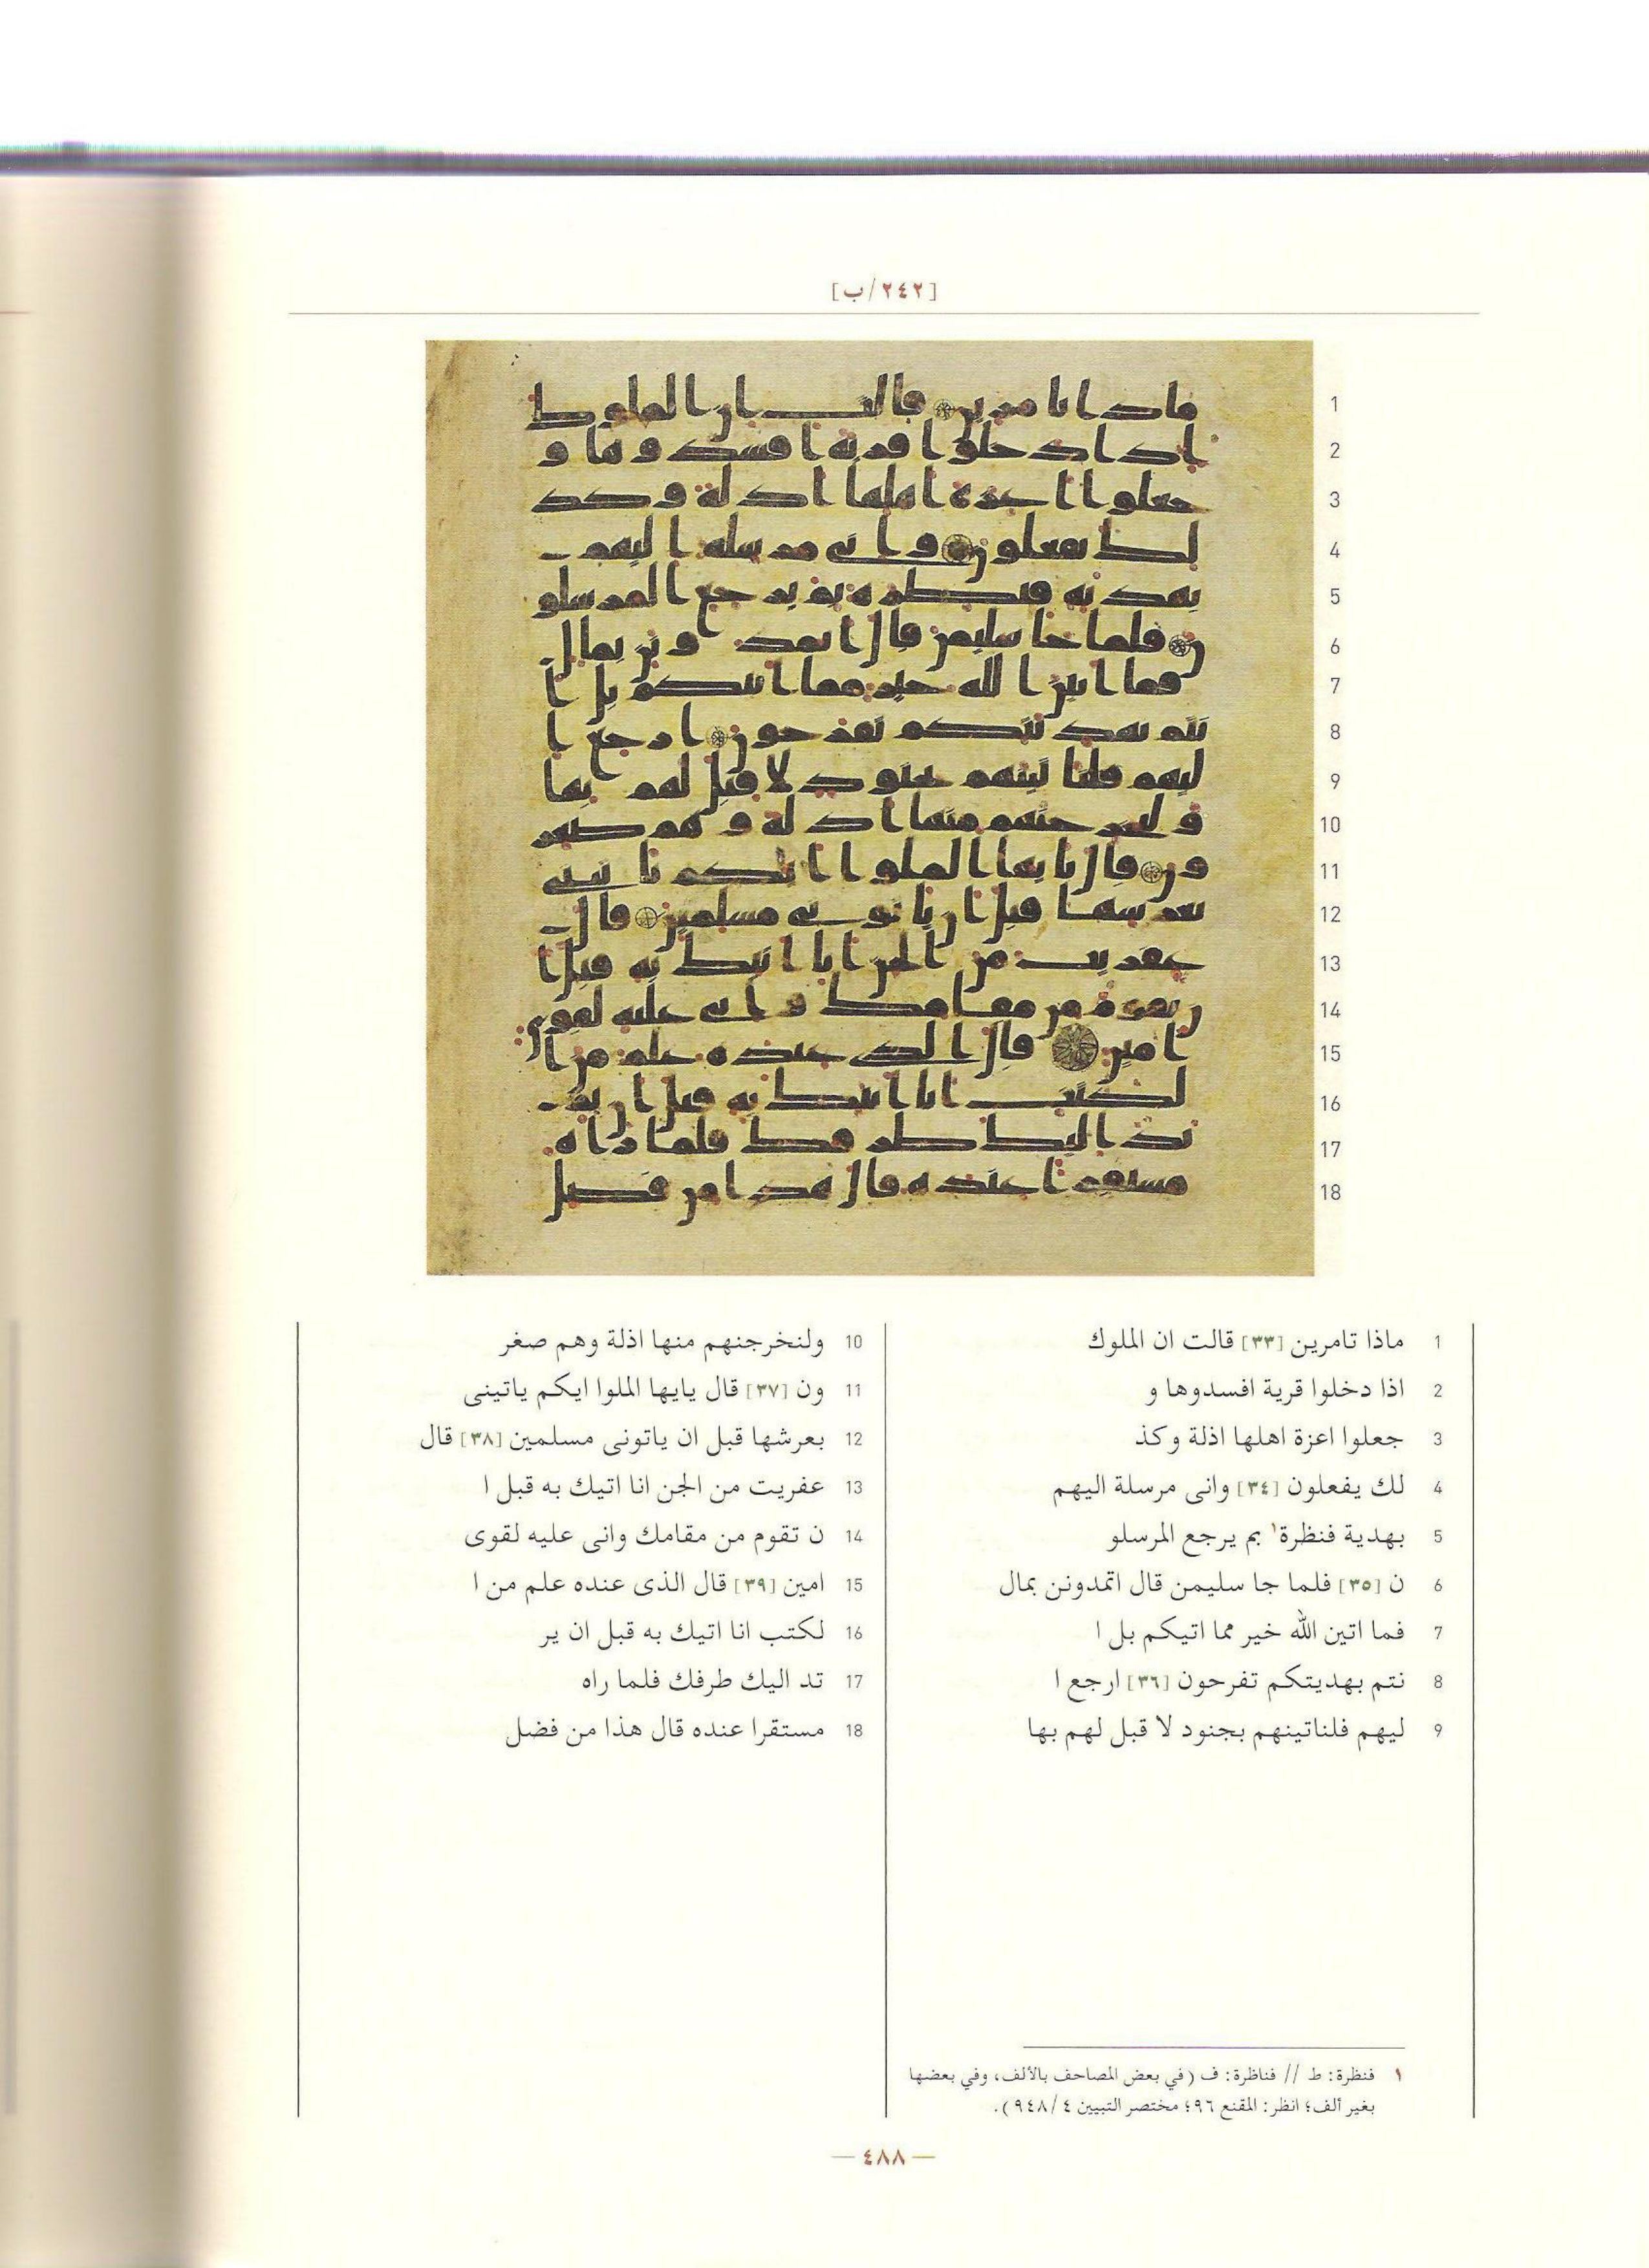 [٢٤٢/ب]
1 ماذا تامرين [٣٣] قالت ان الملوك
2 اذا دخلوا قرية افسدوها و
3 جعلوا اعزة اهلها اذلة وكذ
4 لك يفعلون [٣٤] وانى مرسلة اليهم
5 بهدية فنظرة١ بم يرجع المرسلو
6 ن [٣٥] فلما جا سليمن قال اتمدونن بمال
7 فما اتين الله خير مما اتيكم بل ا
8 نتم بهديتكم تفرحون [٣٦] ارجع ا
9 ليهم فلناتينهم بجنود لا قبل لهم بها
10 ولنخرجنهم منها اذلة وهم صغر
11 ون [٣٧] قال يايها الملوا ايكم ياتينى
12 بعرشها قبل ان ياتونى مسلمين [٣٨] قال
13 عفريت من الجن انا اتيك به قبل ا
14 ن تقوم من مقامك وانى عليه لقوى
15 امين [٣٩] قال الذى عنده علم من ا
16 لكتب انا اتيك به قبل ان ير
17 تد اليك طرفك فلما راه
18 مستقرا عنده قال هذا من فضل
١ فنظرة: ط // فناظرة: ف (في بعض المصاحف بالألف، وفي بعضها
بغير ألف؛ انظر: المقنع ٩٦؛ مختصر التبيين ٩٤٨/٤).
— ٤٨٨ —